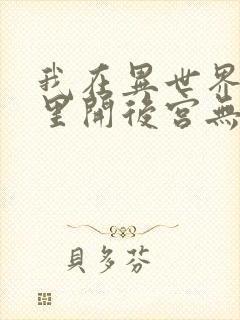 我在異世界
里開後宮無
貝多芬